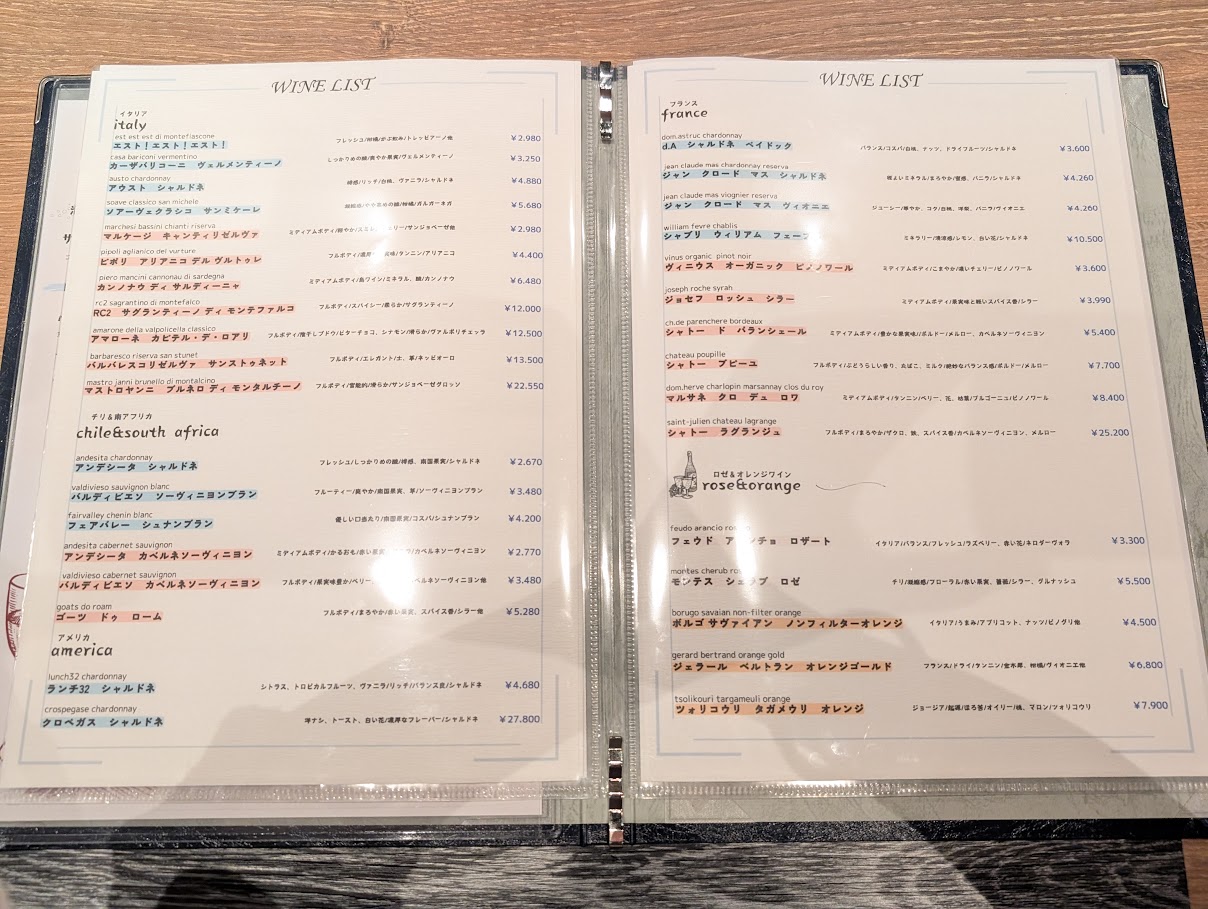 WINE LIST
イタリア
italy
est est est di montefiascone
エスト！エスト！エスト！
フレッシュ/柑橘/がぶ飲み/トレッビアーノ他
¥2.980
casa bariconi vermentino
カーザバリコーニ ヴェルメンティーノ
しっかりめの酸/爽やか果実/ヴェルメンティーノ
¥3.250
austo chardonnay
アウスト シャルドネ
樽感/リッチ/白桃、ヴァニラ/シャルドネ
¥4.880
soave classico san michele
ソアーヴェクラシコ サンミケーレ
やや高めの酸/柑橘/ガルガーネガ
¥5.680
marchesi bassini chianti riserva
マルケージ キャンティリゼルヴァ
ミディアムボディ/軽やか/スミレ、チェリー/サンジョベーゼ他
¥2.980
pipoli aglianico del vurture
ピポリ アリアニコ デル ヴルトゥレ
フルボディ/濃厚 実味/タンニン/アリアニコ
¥4.400
piero mancini cannonau di sardegna
カンノナウ ディ サルディーニャ
ミディアムボディ/島ワイン/ミネラル、酸/カンノナウ
¥6.480
rc2 sagrantino di montefalco
RC2 サグランティーノ ディ モンテファルコ
フルボディ/スパイシー/柔らか/サグランティーノ
¥12.000
amarone della valpolicella classico
アマローネ カピテル・デ・ロアリ
フルボディ/陰干しブドウ/ビターチョコ、シナモン/滑らか/ヴァルポリチェッラ
¥12.500
barbaresco riserva san stunet
バルバレスコリゼルヴァ サンストゥネット
フルボディ/エレガント/土、革/ネッビオーロ
¥13.500
mastro janni brunello di montalcino
マストロヤンニ ブルネロ ディ モンタルチーノ
フルボディ/官能的/滑らか/サンジョベーゼグロッソ
¥22.550
チリ＆南アフリカ
chile&south africa
andesita chardonnay
アンデシータ シャルドネ
フレッシュ/しっかりめの酸/樽感、南国果実/シャルドネ
¥2.670
valdivieso sauvignon blanc
バルディビエソ ソーヴィニヨンブラン
フルーティー/爽やか/南国果実、草/ソーヴィニヨンブラン
¥3.480
fairvalley chenin blanc
フェアバレー シュナンブラン
優しい口当たり/南国果実/コスパ/シュナンブラン
¥4.200
andesita cabernet sauvignon
アンデシータ カベルネソーヴィニヨン
ミディアムボディ/かるおも/赤い果実 カベルネソーヴィニヨン
¥2.770
valdivieso cabernet sauvignon
バルディビエソ カベルネソーヴィニヨン
フルボディ/果実味豊か/ベリー、 ベルネソーヴィニヨン他
¥3.480
goats do roam
ゴーツ ドゥ ローム
フルボディ/まろやか/赤い果実、スパイス香/シラー他
¥5.280
アメリカ
america
lunch32 chardonnay
ランチ32 シャルドネ
シトラス、トロピカルフルーツ、ヴァニラ/リッチ/バランス良/シャルドネ
¥4.680
crospegase chardonnay
クロペガス シャルドネ
洋ナシ、トースト、白い花/濃厚なフレーバー/シャルドネ
¥27.800
WINE LIST
フランス
france
dom.astruc chardonnay
d.A シャルドネ ペイドック
バランス/コスパ/白桃、ナッツ、ドライフルーツ/シャルドネ
¥3.600
jean claude mas chardonnay reserva
ジャン クロード マス シャルドネ
程よいミネラル/まろやか/蜜感、バニラ/シャルドネ
¥4.260
jean claude mas viognier reserva
ジャン クロード マス ヴィオニエ
ジューシー/華やか、コク/白桃、洋梨、バニラ/ヴィオニエ
¥4.260
william fevre chablis
シャブリ ウィリアム フェーブ
ミネラリー/清涼感/レモン、白い花/シャルドネ
¥10.500
vinus organic pinot noir
ヴィニウス オーガニック ピノノワール
ミディアムボディ/こまやか/濃いチェリー/ピノノワール
¥3.600
joseph roche syrah
ジョセフ ロッシュ シラー
ミディアムボディ/果実味と軽いスパイス香/シラー
¥3.990
ch.de parenchere bordeaux
シャトー ド パランシェール
ミディアムボディ/豊かな果実味//ボルドー/メルロー、カベルネソーヴィニヨン
¥5.400
chateau poupille
シャトー プピーユ
フルボディ/ぶどうらしい香り、たばこ、ミルク/絶妙なバランス感/ボルドー/メルロー
¥7.700
dom.herve charlopin marsannay clos du roy
マルサネ クロ デュ ロワ
ミディアムボディ/タンニン/ベリー、花、枯葉/ブルゴーニュ/ピノワール
¥8.400
saint-julien chateau lagrange
シャトー ラグランジュ
フルボディ/まろやか/ザクロ、鉄、スパイス香/カベルネソーヴィニヨン、メルロー
¥25.200
ロゼ＆オレンジワイン
rose&orange
feudo arancio ro
フェウド アランチョ ロザート
イタリア/バランス/フレッシュ/ラズベリー、赤い花/ネロダーヴォラ
¥3.300
montes cherub ro
モンテス シェラブ ロゼ
チリ/凝縮感/フローラル/赤い果実、薔薇/シラー、グルナッシュ
¥5.500
borugo savaian non-filter orange
ボルゴ サヴァイアン ノンフィルターオレンジ
イタリア/うまみ/アプリコット、ナッツ/ピノグリ他
¥4.500
gerard bertrand orange gold
ジェラール ベルトラン オレンジゴールド
フランス/ドライ/タンニン/金木犀、柑橘/ヴィオニエ他
¥6.800
tsolikouri targameuli orange
ツォリコウリ タガメウリ オレンジ
ジョージア/起源/ほろ苦/オイリー/桃、マロン/ツォリコウリ
¥7.900